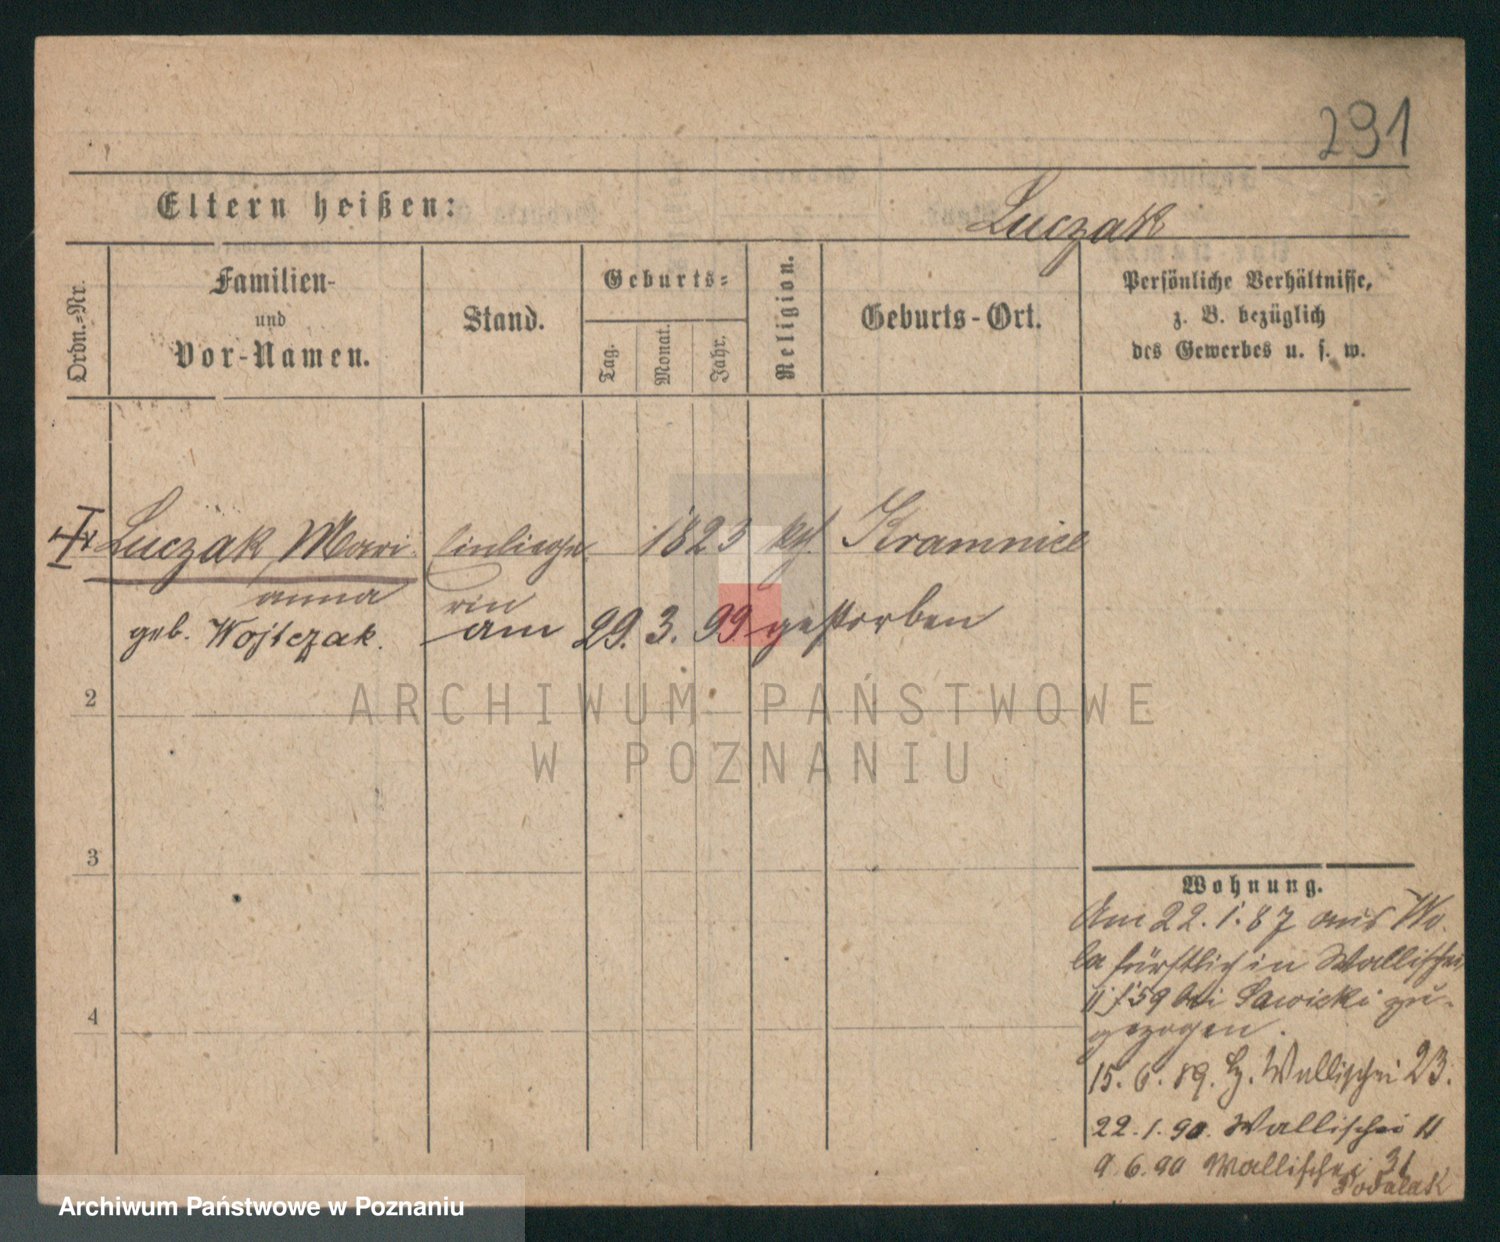 291
Eltern heißen:
Luczak
Ordn.-Nr.
Familien-
und
Vor-Namen.
Stand.
Geburts-
Tag.
Monat.
Jahr.
Religion.
Geburts-Ort.
Persönliche Verhältnisse,
z. B. bezüglich
des Gewerbes u. s. w.
Luczak, Mari- Einliege- 1823 kth. Kramnice
anna rin
geb. Wojtczak. am 29. 3. 99 gestorben
ARCHIWUM PAŃSTWOWE
W POZNANIU
2
3
4
Wohnung.
Am 22. 1. 87 aus Wo-
la fürstlich in Wallischei
59 bei Sawicki zu-
gezogen.
15. 6. 89. Wallischei 23.
22. 1. 90. Wallischei 11
9. 6. 90 Wallischei 31
Podalak
Archiwum Państwowe w Poznaniu